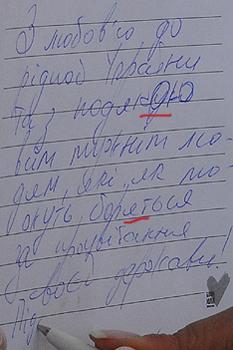 З любов'ю до
рідної України
та з подякою
всім мужнім лю-
дям, які „як мо-
жуть, боряться
за процвітання
своєї держави!
Під